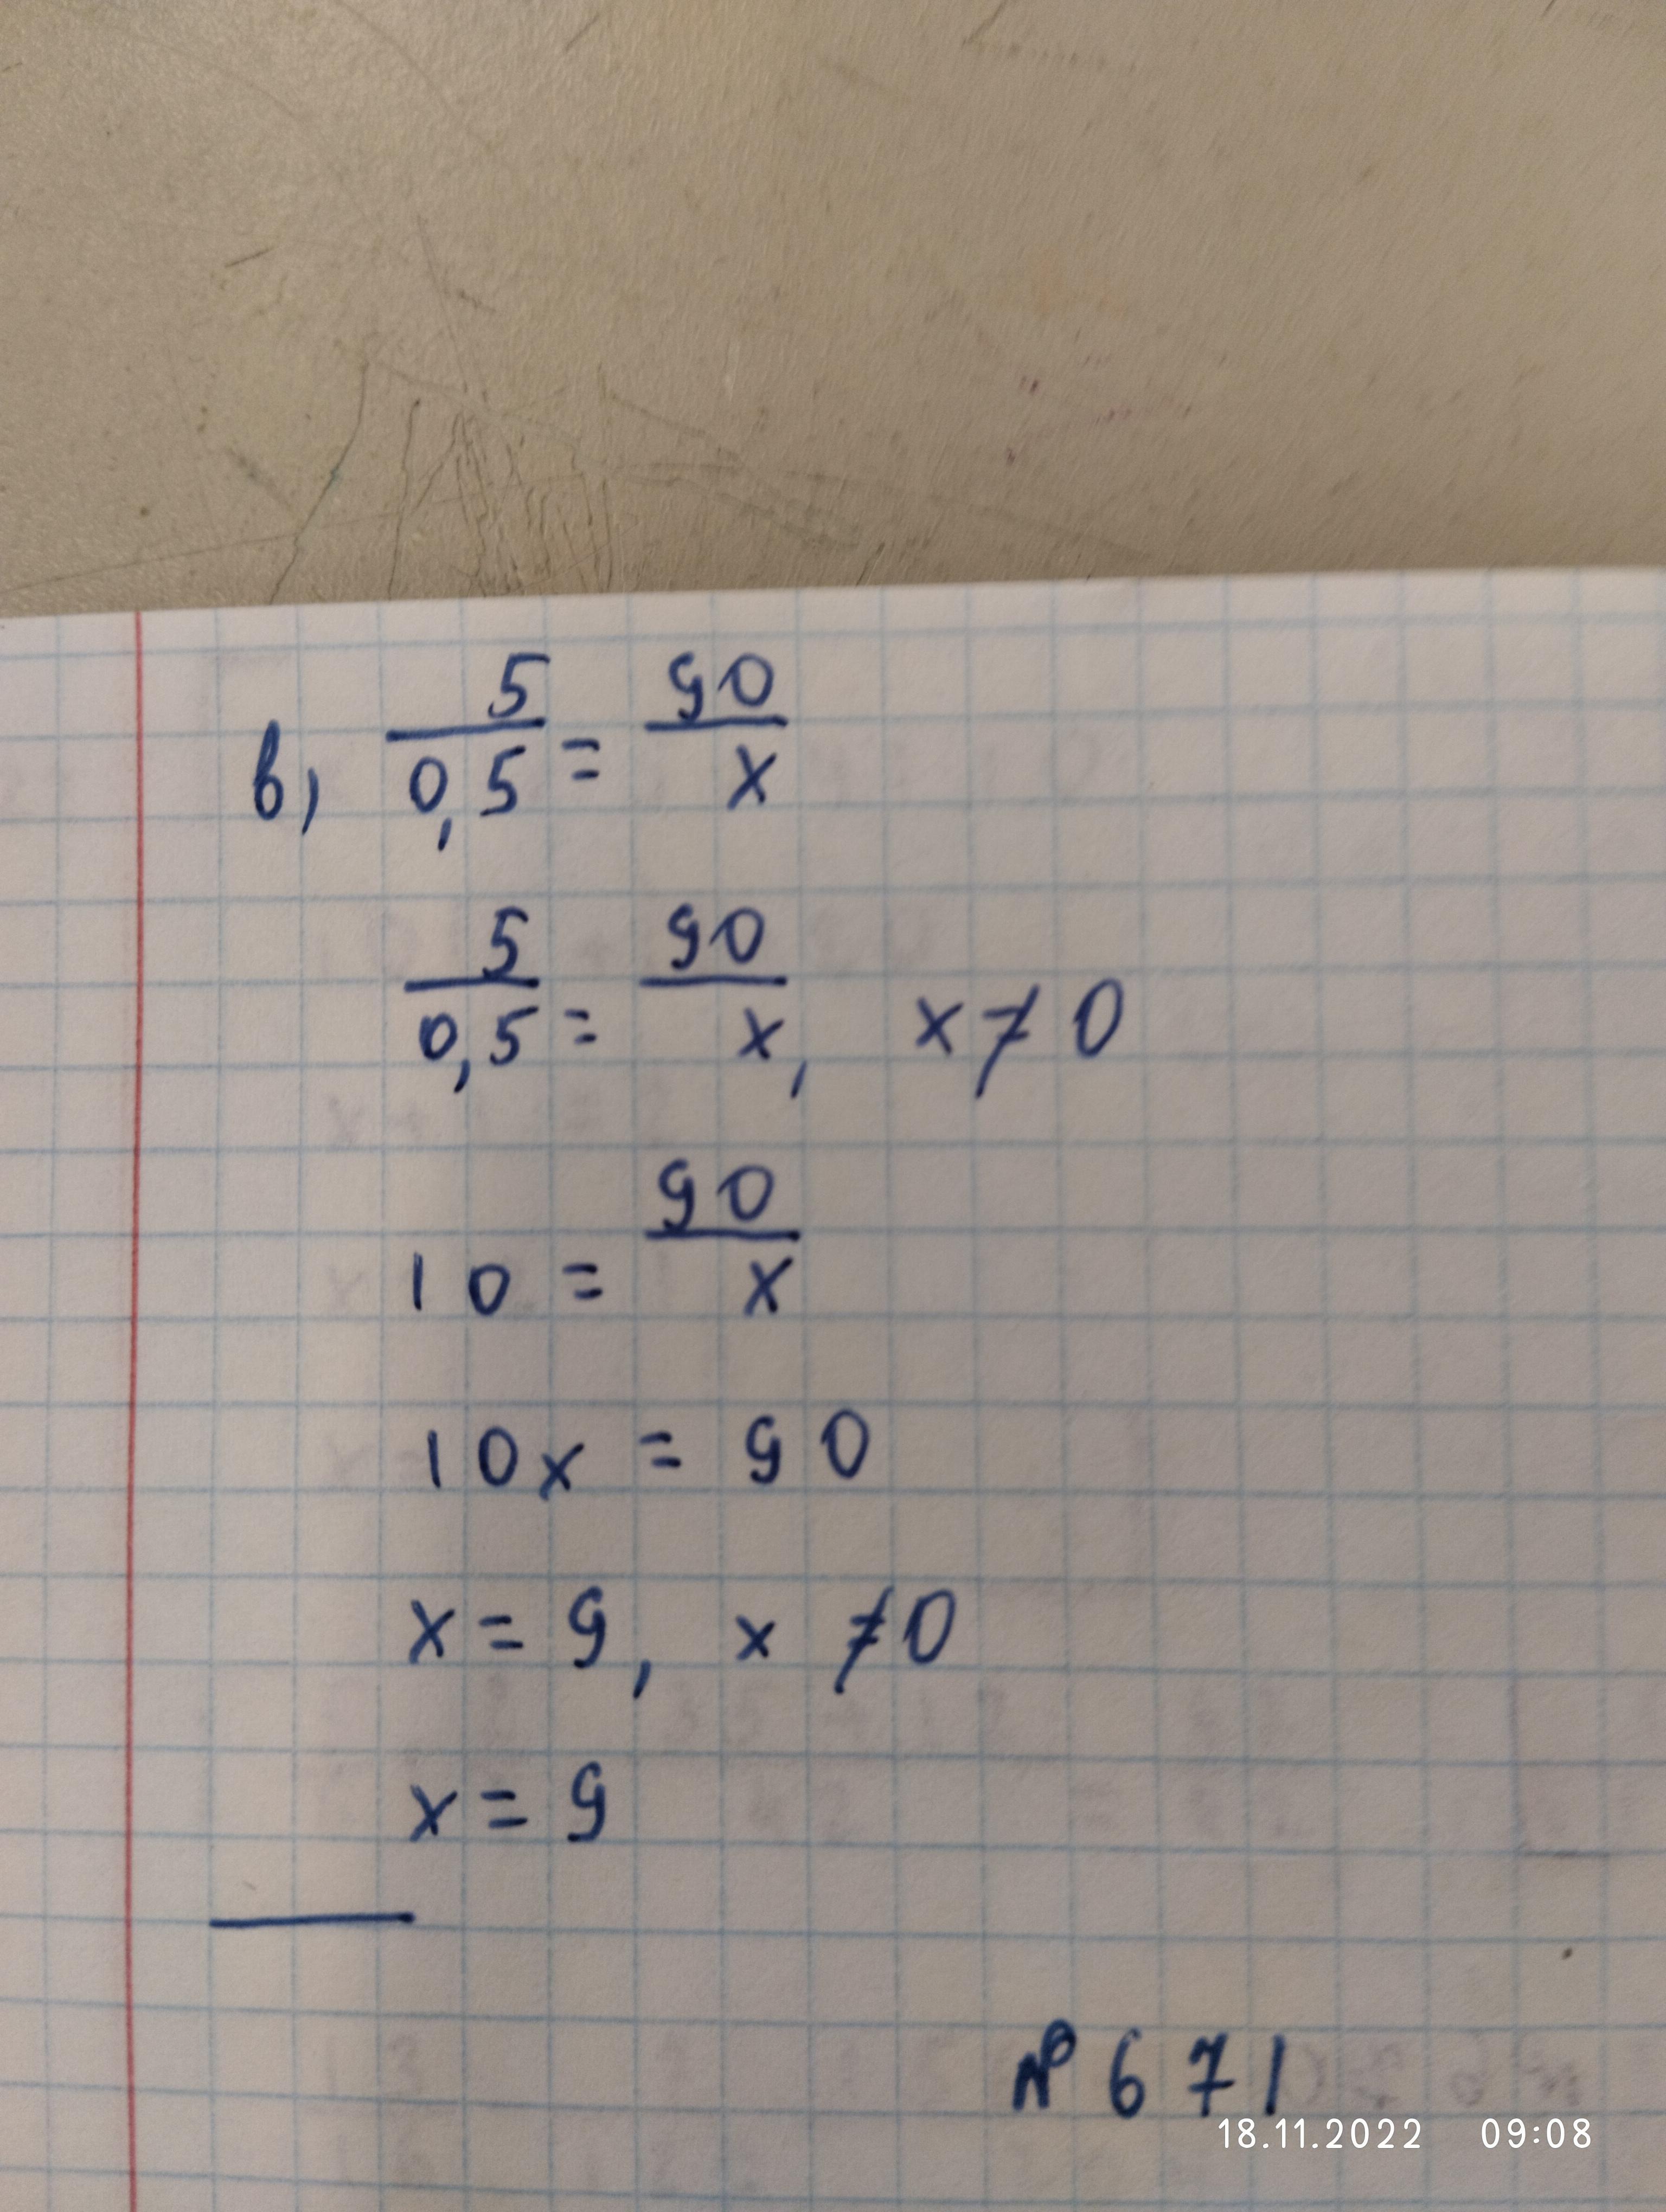 в) 5/0,5 = 90/x
5/0,5 = 90/x, x ≠ 0
10 = 90/x
10x = 90
x = 9, x ≠ 0
x = 9
№ 671
18.11.2022 09:08